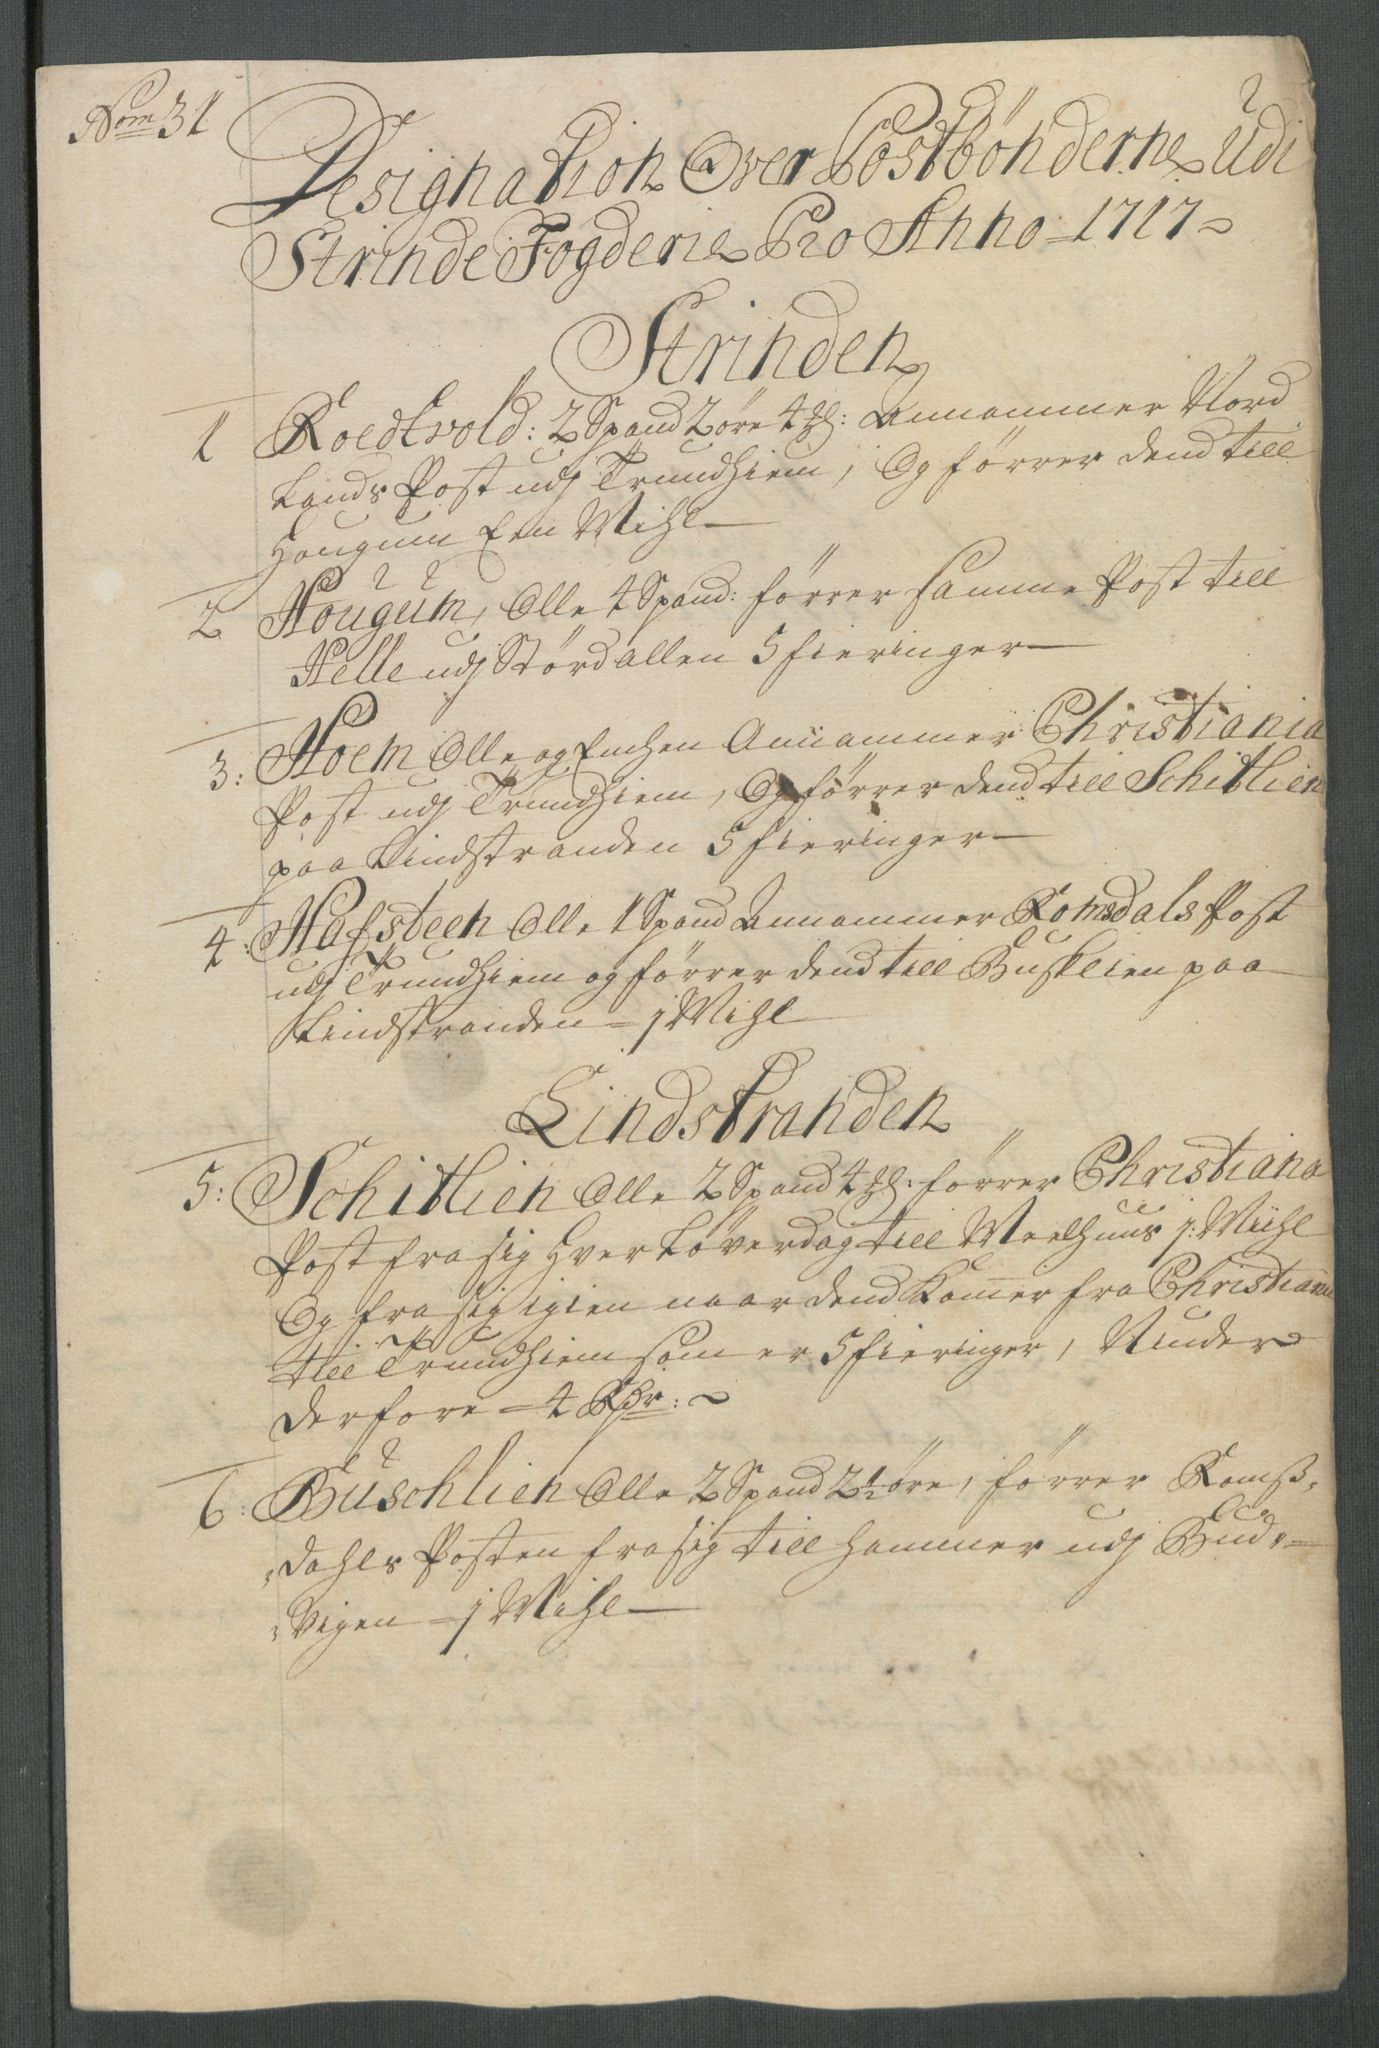 Nom 31
Designation Over Postbønderne Udi
Strinde Fogderie Pro Anno = 1717
Strinden
1 Roedtvold: 2 Spand 2 øre 4 Annammer Nord
Lands Post udj Trundhiem, Og førrer dend till
Hougum Een Mihl
2 Hougum, Olle 4 Spand: førrer samme Post till
Helle udj Størdallen 5 fieringer
3: Hoem Olle og Annammer Christiania
Post udj Trundhiem, Og førrer dend till Schitlien
paa Lindstranden 5 fieringer
4: Hafsteen Olle 1 Spand Annammer Romsdals Post
udj Trundhiem og førrer dend till Busklien paa
Lindstranden = j Mihl
Lindstranden
5: Schitlien Olle 2 Spand 4 førrer Christiana
Post fra sig Hver Løverdag till Meelhuus j: Miihl
Og fra sig igien naar dend Komer fra Christiania
till Trundhiem som er 5 fieringer, Niuder
derfore = 4 Rdr:
6: Buschlien Olle 2 Spand 2½ øre, førrer Romß-
dahls Posten fra sig till Hammer udj Bud-
Vigen = j Mihl